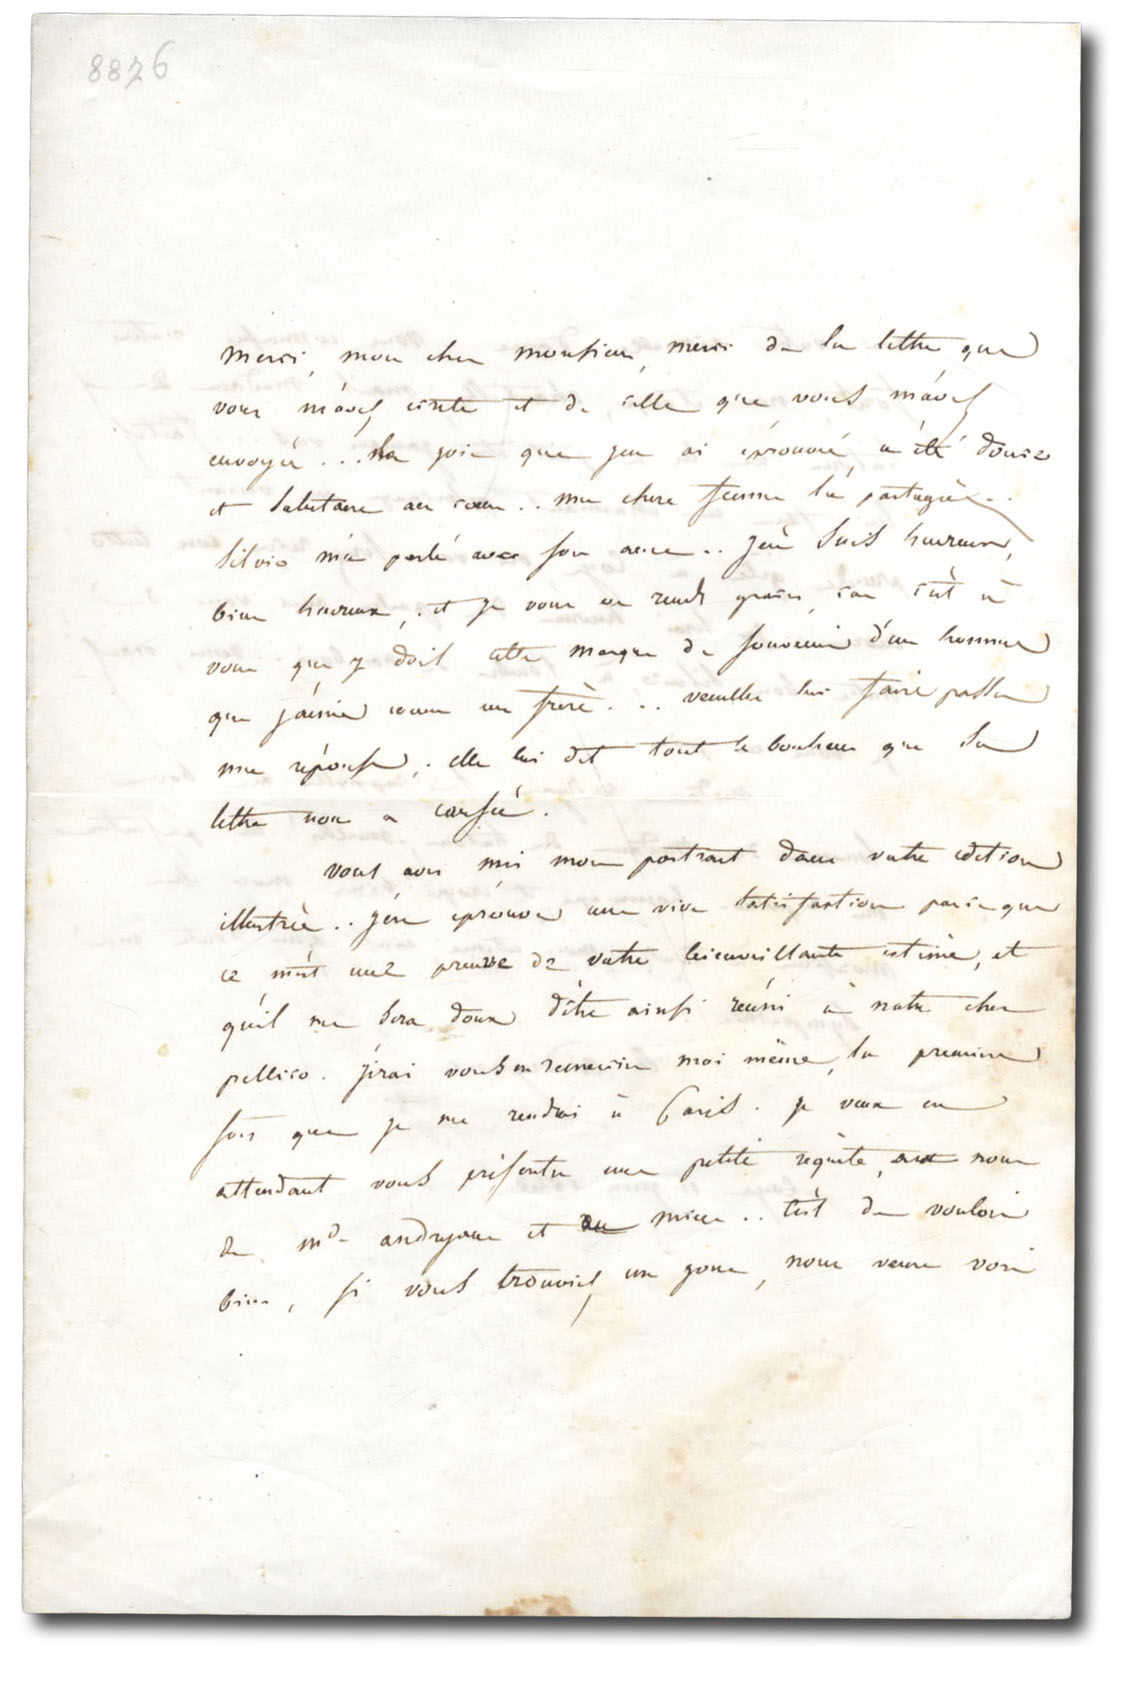 8826
merci, mon cher monsieur, merci de la lettre que
vous m'avez écrite et de celle que vous m'avez
envoyée... la joie que j'en ai éprouvé, a été douce
et salutaire au cœur.. ma chere femme l'a partagée..
Silvio m'a parlé avec son ame.. j'en suis heureux,
bien heureux, et je vous en rends graces, car c'est à
vous que je dois cette marque de souvenir d'un homme
que j'aime comme un frère... veuillez lui faire passer
ma réponse; elle lui dit tout le bonheur que sa
lettre nous a causé.
vous avez mis mon portrait dans votre edition
illustrée.. j'en eprouve une vive satisfaction parceque
ce m'est une preuve de votre bienveillante estime, et
qu'il me sera doux d'être ainsi réuni à notre cher
pellico. j'irai vous en remercier moi même, la premiere
fois que je me rendrai à Paris. je veux en
attendant vous présenter une petite requête, au nom
de md. andryane et au mien.. c'est de vouloir
bien, si vous trouviez un jour, nous venir voir